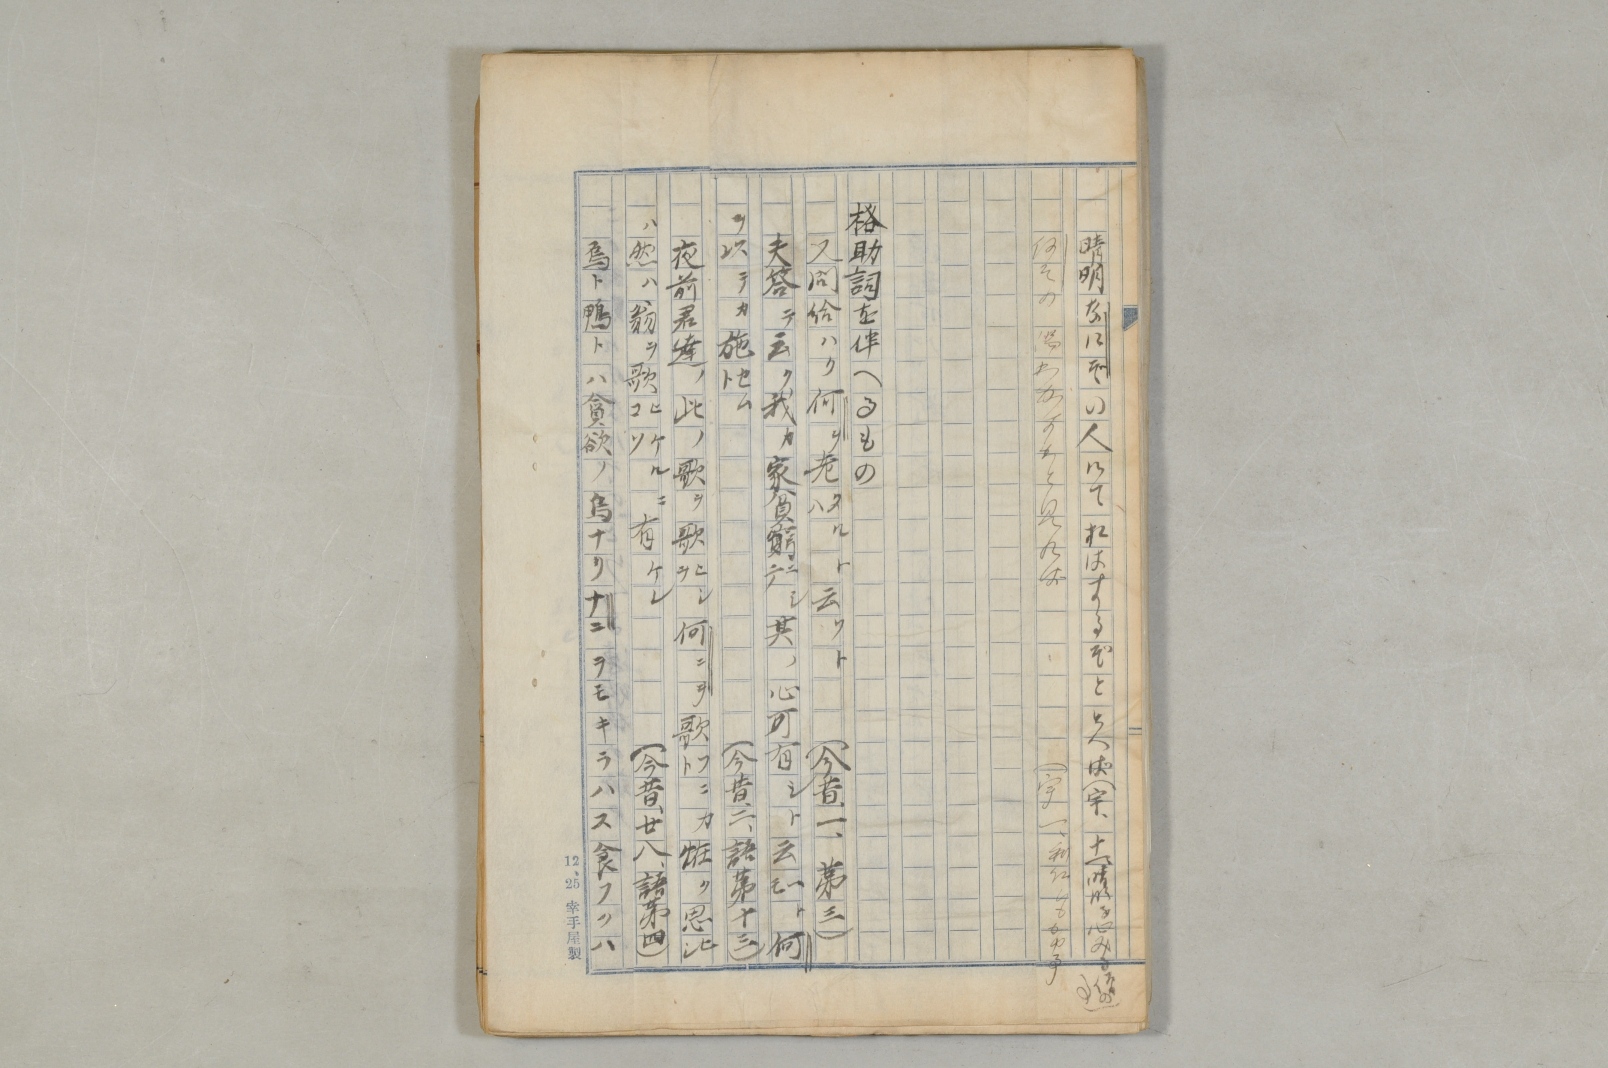 晴明なにぞの人にておはするぞととへば(宇、十一、晴明を心みる僧の事)
何その湯わかすぞと見れば
格助詞を伴へるもの
又問給ハク何ヲ老ハタルト云ツト (今昔、一、第三)
夫答テ云ク我カ家貧窮ニシテ其ノ心可有シト云ヘモト何
ヲ以テカ施セムト (今昔、二、語第十三)
夜前君達ノ此ノ歌ヲ歌ヒシヲ何ニヲ歌フニカト恠ク思ヒシ
ハ然ハ翁ヲ歌ヒケルニコソ有ケレ (今昔、廿八、語第四)
烏ト鴨トハ貪欲ノ鳥ナリナニヲモキラハス食フツハ
12、25 幸手屋製